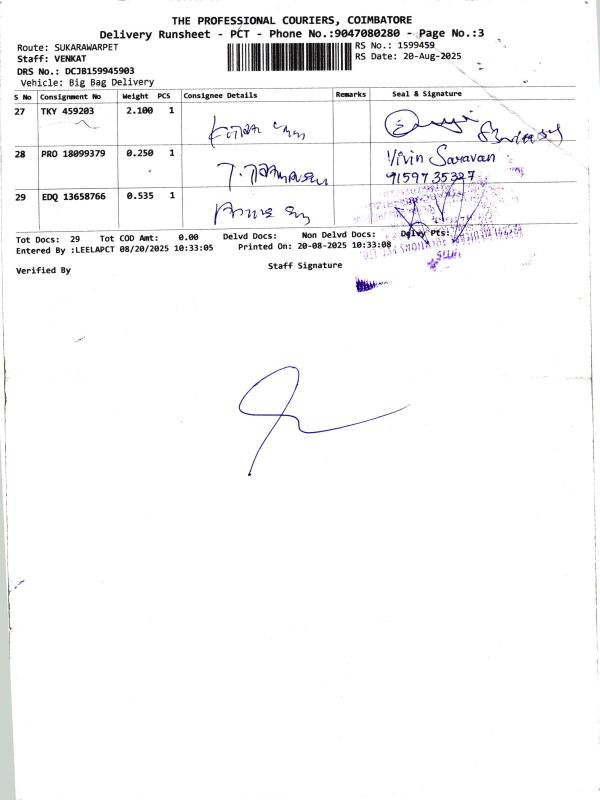 THE PROFESSIONAL COURIERS, COIMBATORE
Delivery Runsheet - PCT - Phone No.:9047080280 - Page No.:3
Route: SUKARAWARPET
RS No.: 1599459
Staff: VENKAT
RS Date: 20-Aug-2025
DRS No.: DCJB159945903
Vehicle: Big Bag Delivery
S No Consignment No Weight PCS Consignee Details Remarks Seal & Signature
27 TKY 459203 2.100 1
28 PRO 18099379 0.250 1 Vivin Saravan
9159735327
29 EDQ 13658766 0.535 1
Tot Docs: 29 Tot COD Amt: 0.00 Delvd Docs: Non Delvd Docs: Delvy Pts:
Entered By :LEELAPCT 08/20/2025 10:33:05 Printed On: 20-08-2025 10:33:08
Verified By Staff Signature